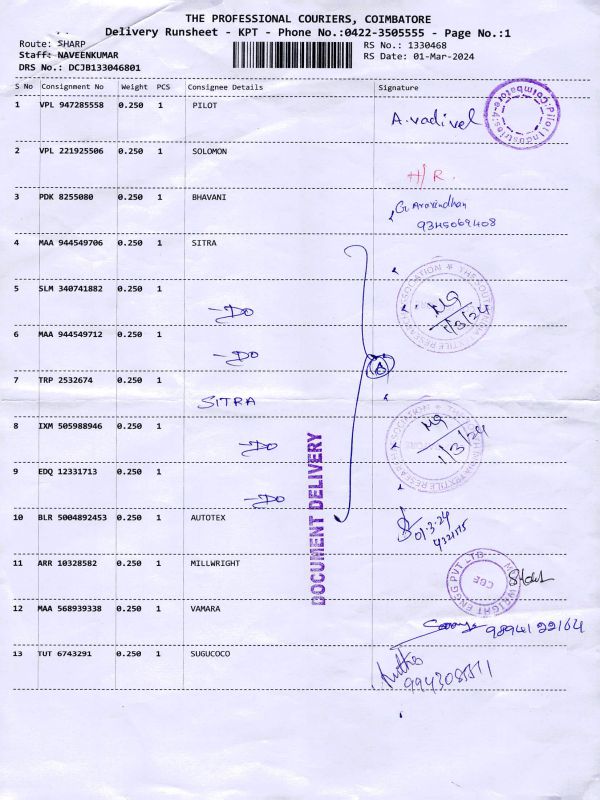 THE PROFESSIONAL COURIERS, COIMBATORE
Delivery Runsheet - KPT - Phone No.:0422-3505555 - Page No.:1
Route: SHARP
RS No.: 1330468
Staff: NAVEENKUMAR
RS Date: 01-Mar-2024
DRS No.: DCJB133046801
S No Consignment No Weight PCS Consignee Details Signature
1 VPL 947285558 0.250 1 PILOT A.vadivel
Pilot Industries Coimbatore-4
2 VPL 221925506 0.250 1 SOLOMON H/R.
3 PDK 8255080 0.250 1 BHAVANI G. Aravindhan
9345069408
4 MAA 944549706 0.250 1 SITRA
5 SLM 340741882 0.250 1 -DO
THE SOUTH INDIA TEXTILE RESEARCH ASSOCIATION
1/3/24
6 MAA 944549712 0.250 1 -DO
7 TRP 2532674 0.250 1 SITRA
8 IXM 505988946 0.250 1 -DO
THE SOUTH INDIA TEXTILE RESEARCH ASSOCIATION
1/3/24
9 EDQ 12331713 0.250 1 -DO
DOCUMENT DELIVERY
10 BLR 5004892453 0.250 1 AUTOTEX 01.3.24
11 ARR 10328582 0.250 1 MILLWRIGHT
MILLWRIGHT ENGG PVT LTD.
CBE
12 MAA 568939338 0.250 1 VAMARA 9894122164
13 TUT 6743291 0.250 1 SUGUCOCO